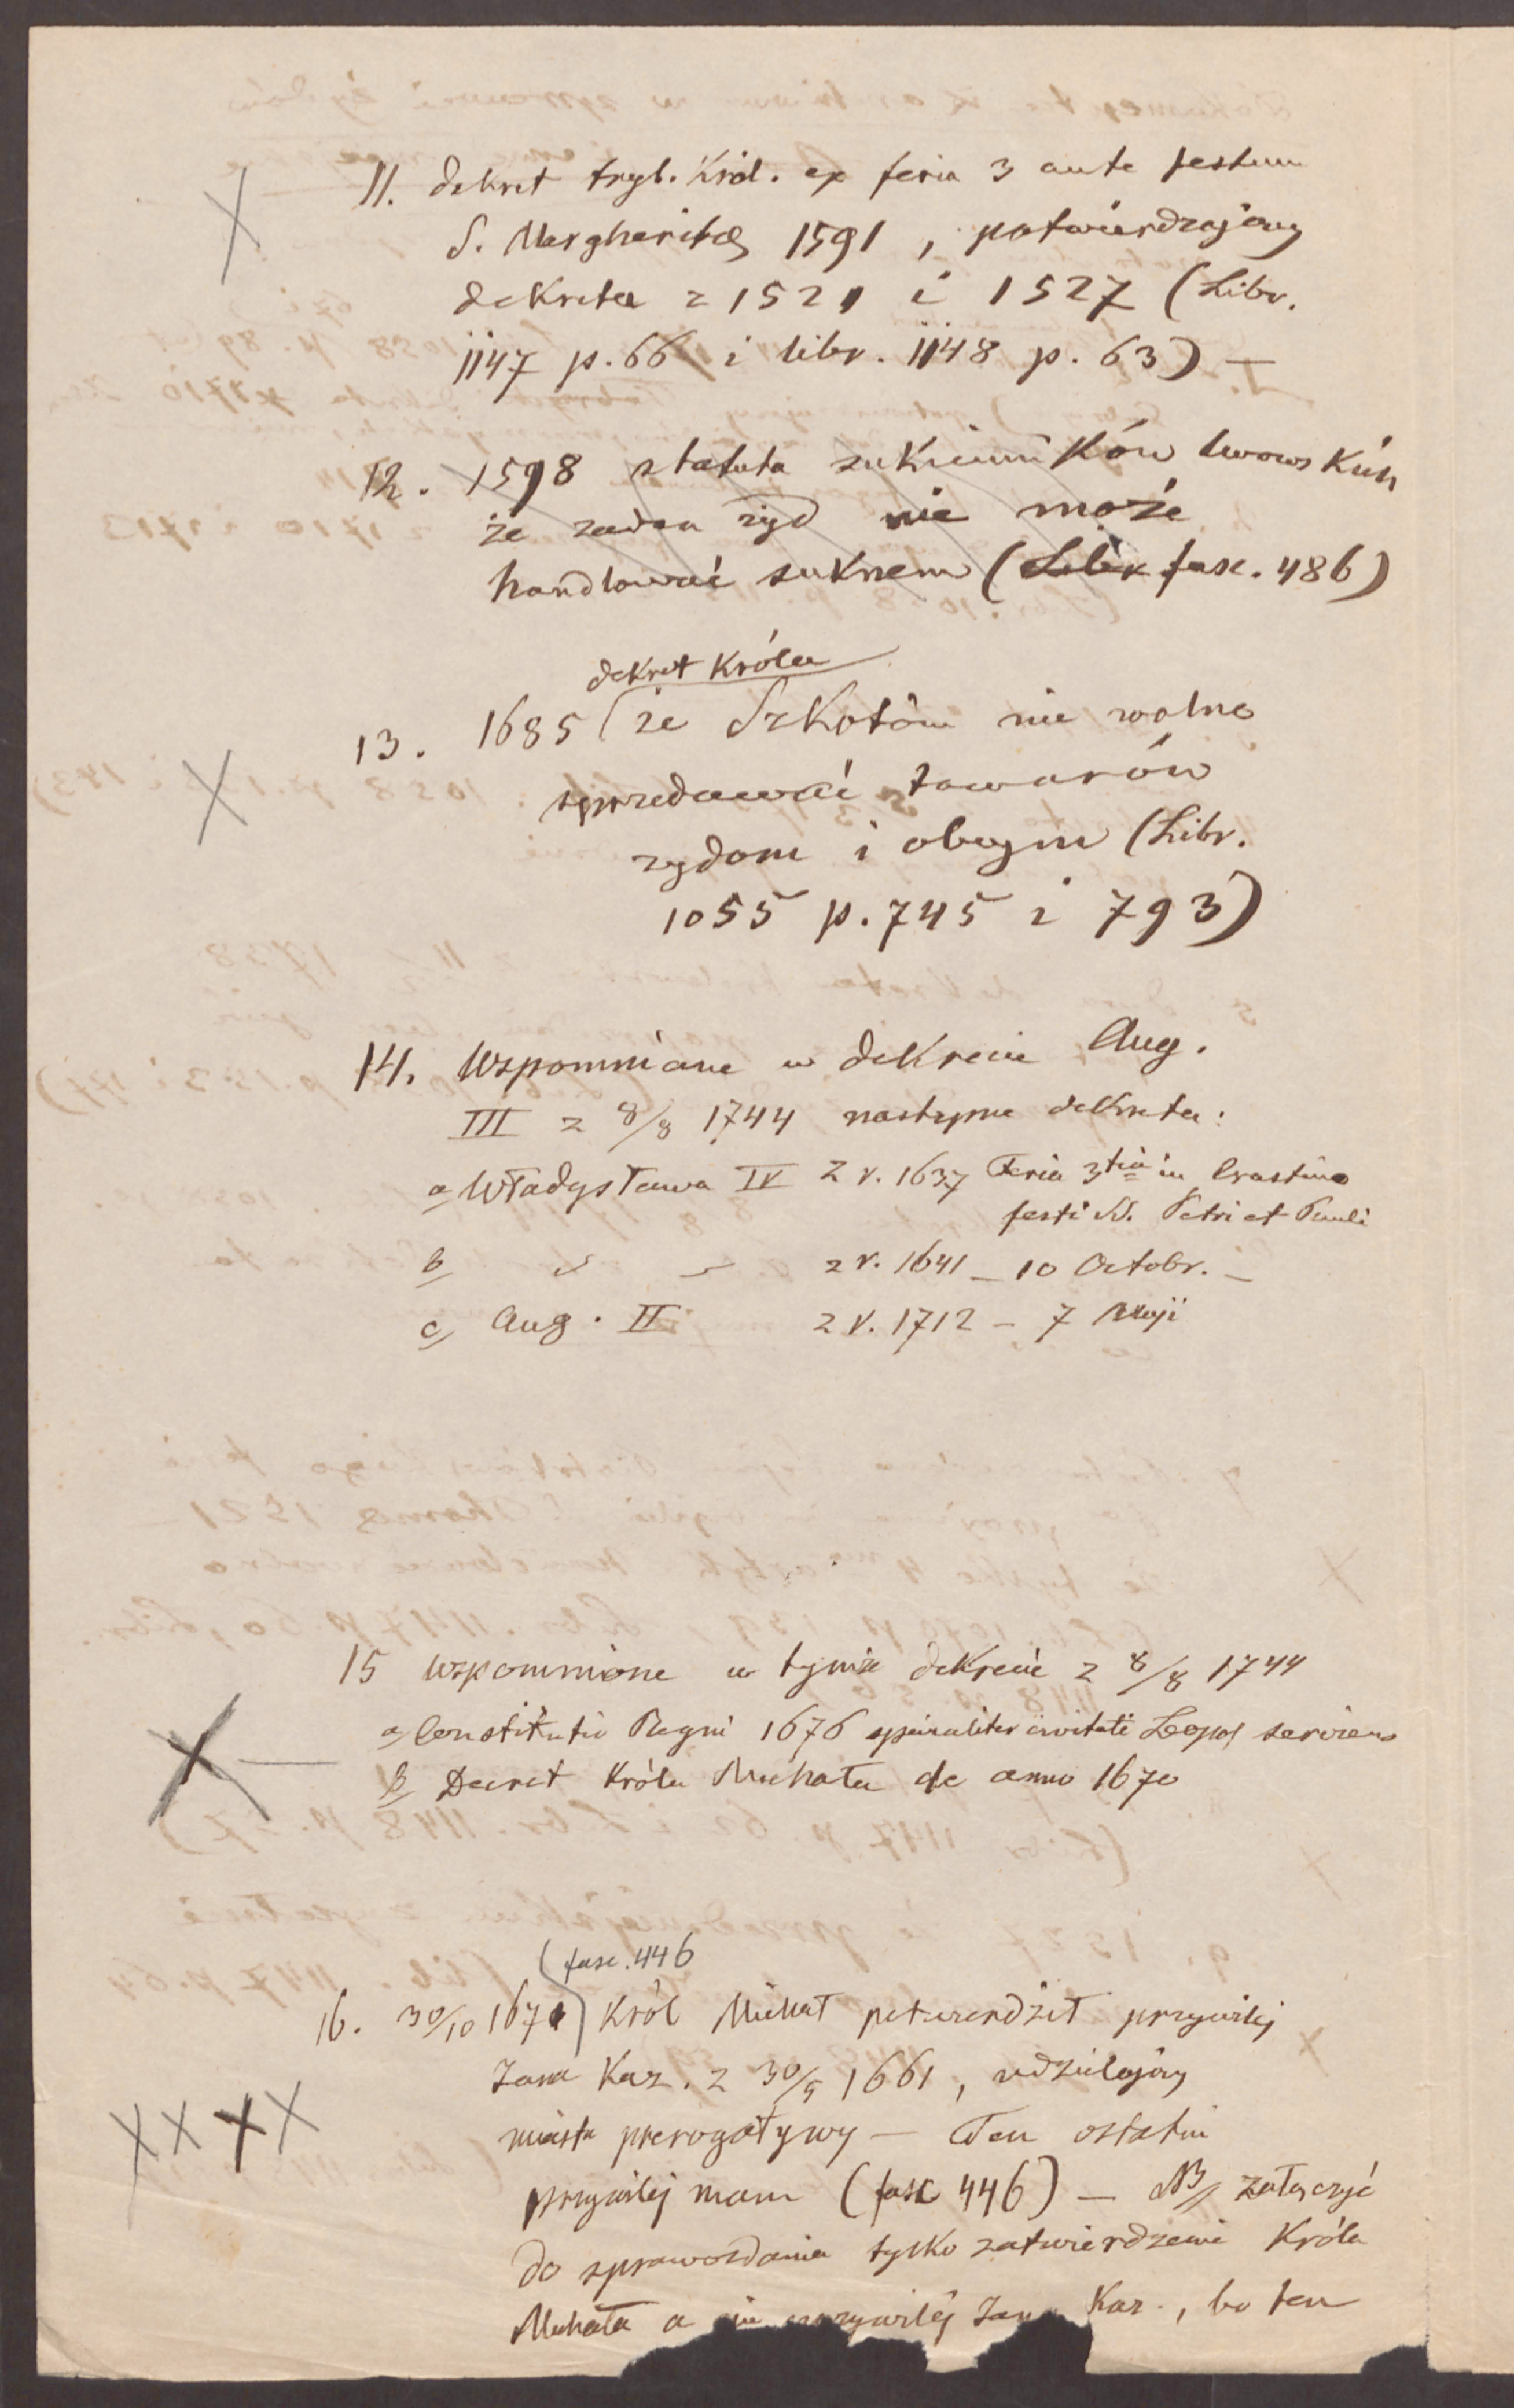 11. dekret tryb. Król. ex feria 3 ante festum
S. Margheritæ 1591, potwierdzający
dekreta z 1521 i 1527 (Libr.
1147 p. 66 i libr. 1148 p. 63) —
12. 1598 statuta sukienników lwowskich
że żaden żyd nie może
handlować suknem (Libr fasc. 486)
dekret Króla
13. 1685 (że Szkotom nie wolno
sprzedawać towarów
żydom i obcym (Libr.
1055 p. 745 i 793)
14. Wspomniane w dekrecie Aug.
III z 8/8 1744 następne dekreta:
a, Władysława IV z r. 1637 Feria 3tia in Crastino
festi SS. Petri et Pauli
b, z r. 1641 — 10 Octobr. —
c, Aug. II z r. 1712 — 7 Maji
15 Wspomnione w tymże dekrecie z 8/8 1744
a, Constitutio Regni 1676 specialiter civitati Leopol serviens
b, Decret Króla Michała de anno 1670
(fasc. 446
16. 30/10 1670) Król Michał potwierdził przywilej
Jana Kaz. z 30/5 1661, udzielający
miastu prerogatywy — Ten ostatni
przywilej mam (fasc 446) — NB, załączyć
do sprawozdania tylko zatwierdzenie Króla
Michała a nie przywilej Jana Kaz., bo ten